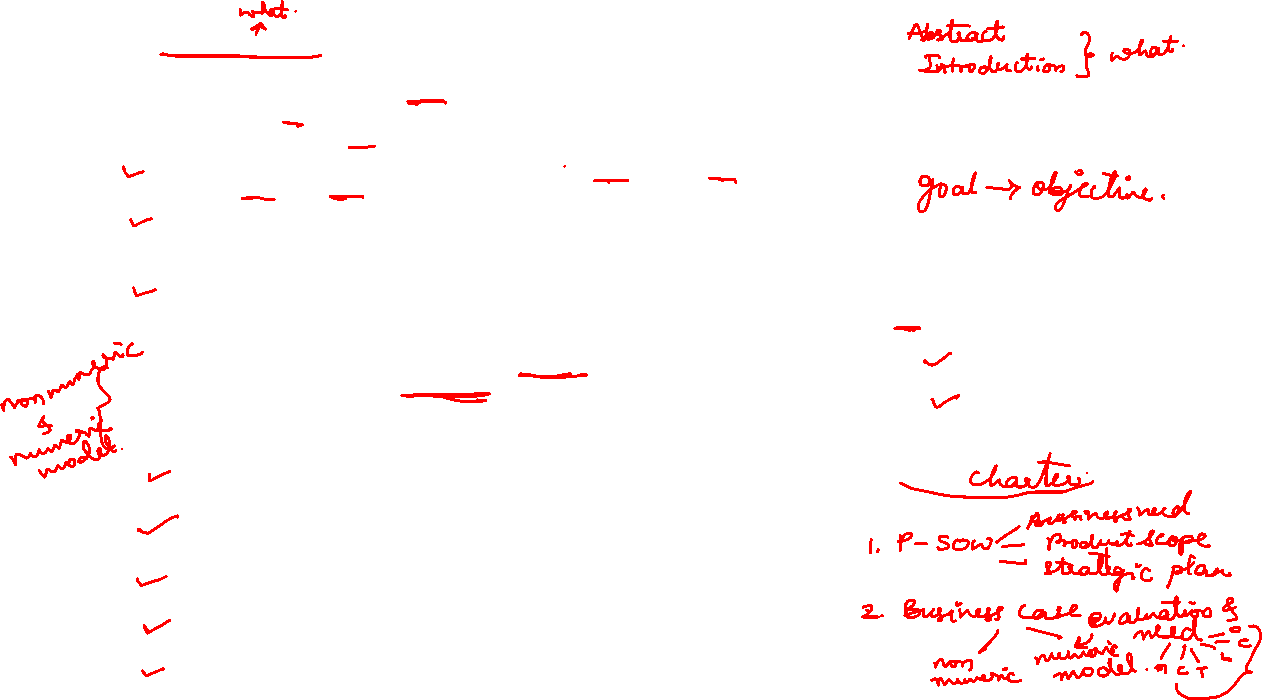 what.
Abstract
Introduction } what.
goal → objective.
non numeric
&
numeric
model.
Charter
1. P-SOW
Business need
Product scope
strategic plan
2. Business case
evaluation &
need
non
numeric
numeric
model.
M C T L C O